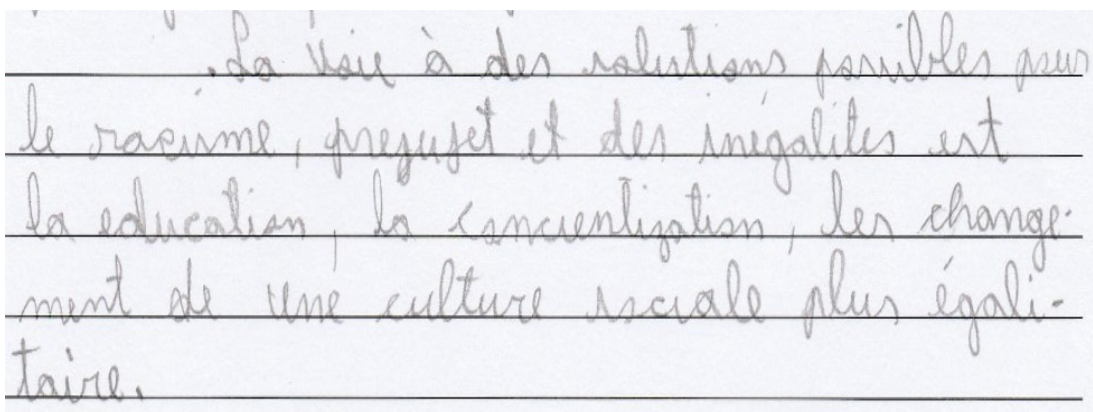 La voie à des solutions possibles pour
le racisme, prejujet et des inégalites est
la education, la concientization, les change-
ment de une culture sociale plus égali-
taire.